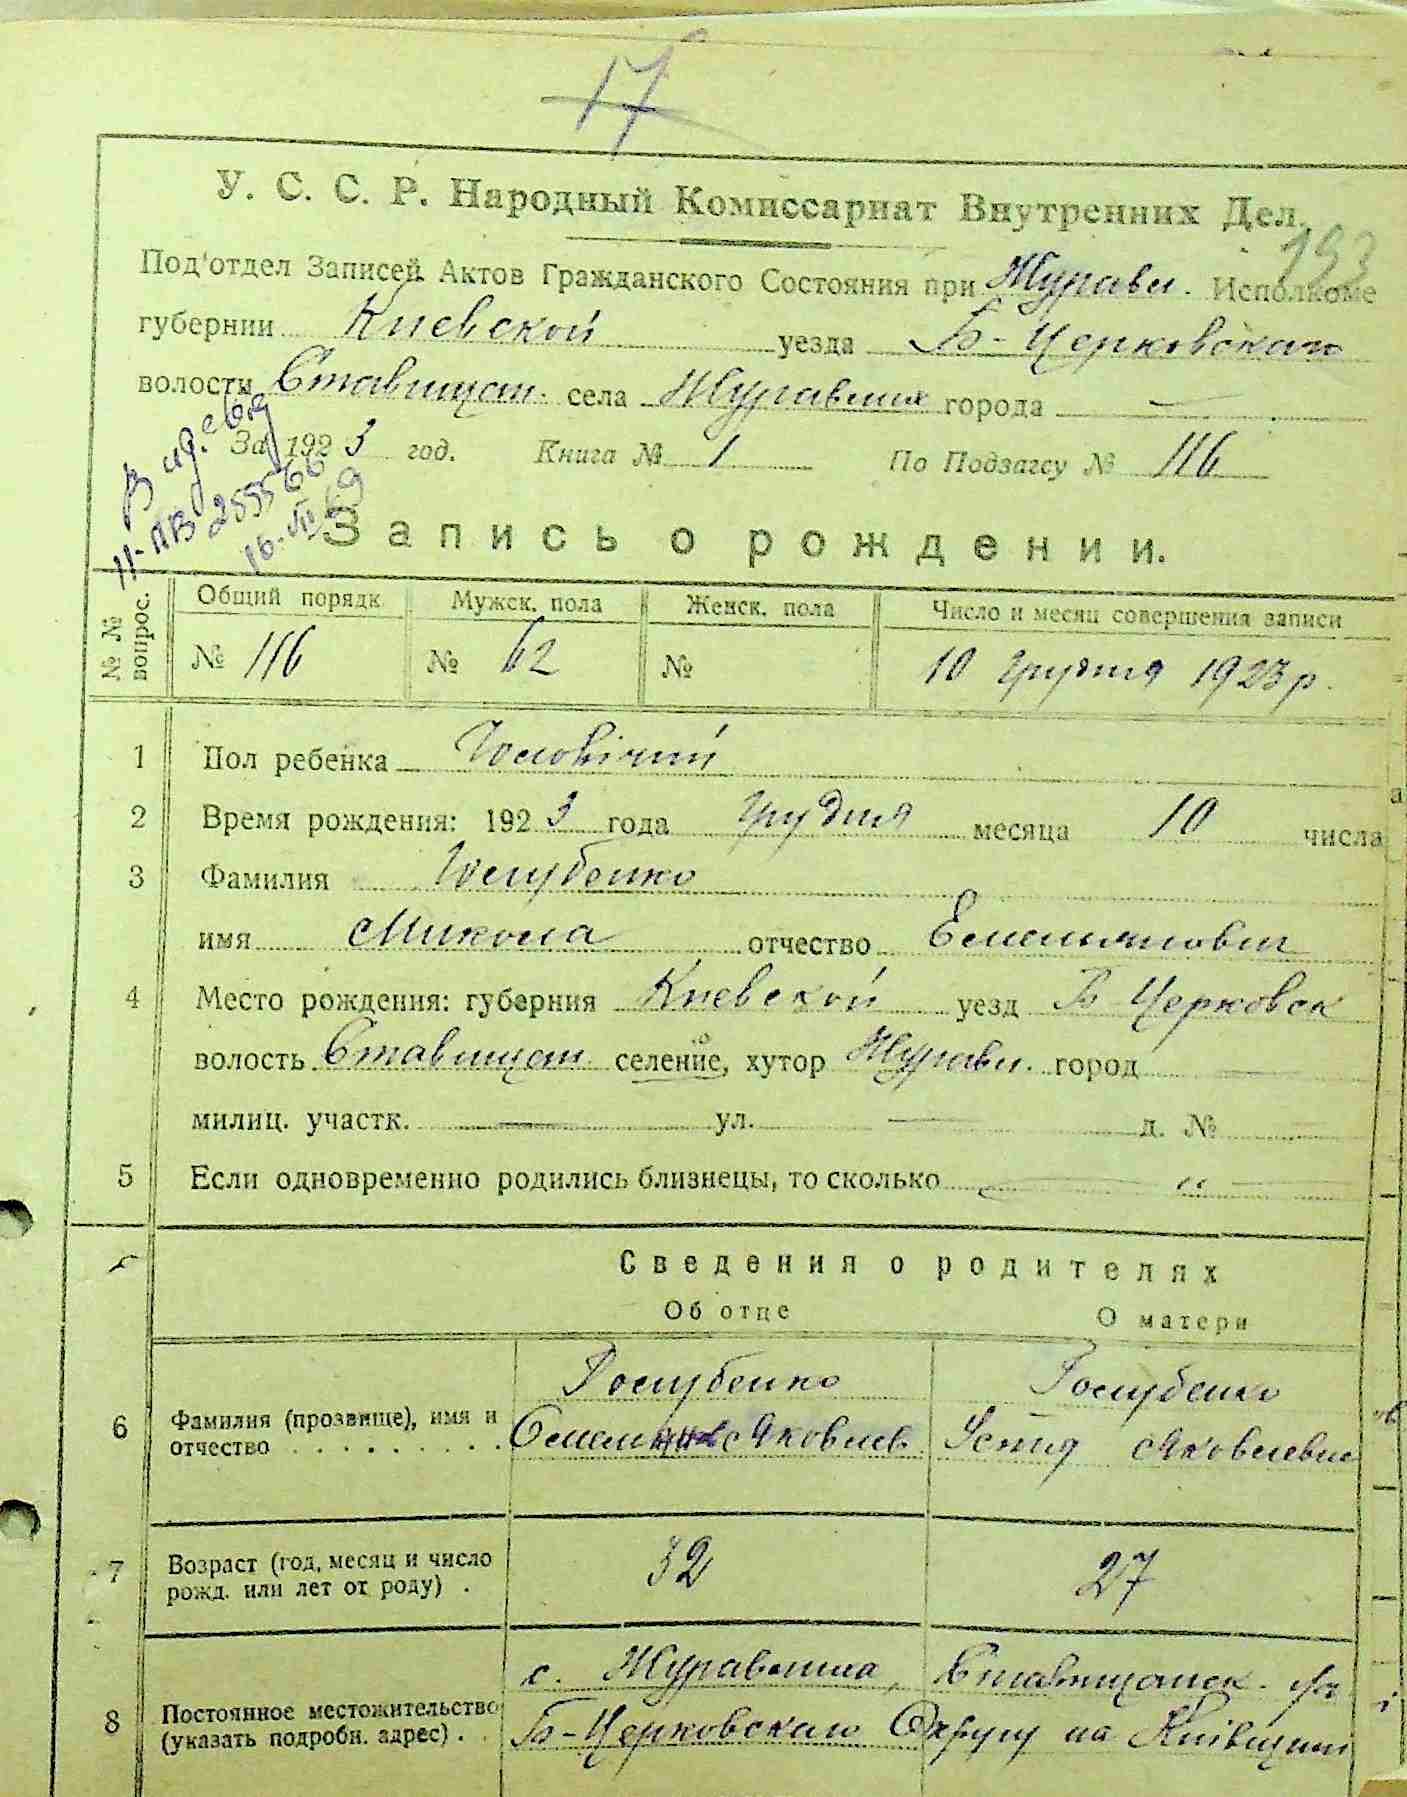 17
У. С. С. Р. Народный Комиссариат Внутренних Дел.
193
Под'отдел Записей Актов Гражданского Состояния при Журавл. Исполкоме
губернии Киевской уезда Б-Церковского
волости Ставищан. села Журавлиха города —
За 1923 год. Книга № 1 По Подзагсу № 116
11-ПВ 255566
16-VII 69
Запись о рождении.
№ № вопрос. Общий порядк Мужск. пола Женск. пола Число и месяц совершения записи
№ 116 № 62 № 10 грудня 1923 р.
1 Пол ребенка Чоловічий
2 Время рождения: 1923 года грудня месяца 10 числа
3 Фамилия Голубенко
имя Микола отчество Емельянович
4 Место рождения: губерния Киевской уезд Б Церковск
волость Ставищан. селение, хутор Журавл. город —
милиц. участк. — ул. — д. №
5 Если одновременно родились близнецы, то сколько — " —
Сведения о родителях
Об отце О матери
Голубенко Голубенко
6 Фамилия (прозвище), имя и отчество Яковлев Устия Яковлевна
7 Возраст (год, месяц и число рожд. или лет от роду) . 32 27
с. Журавлиха, Ставищанск.
8 Постоянное местожительство (указать подробн. адрес) . Б-Церковского Округу на Київщині